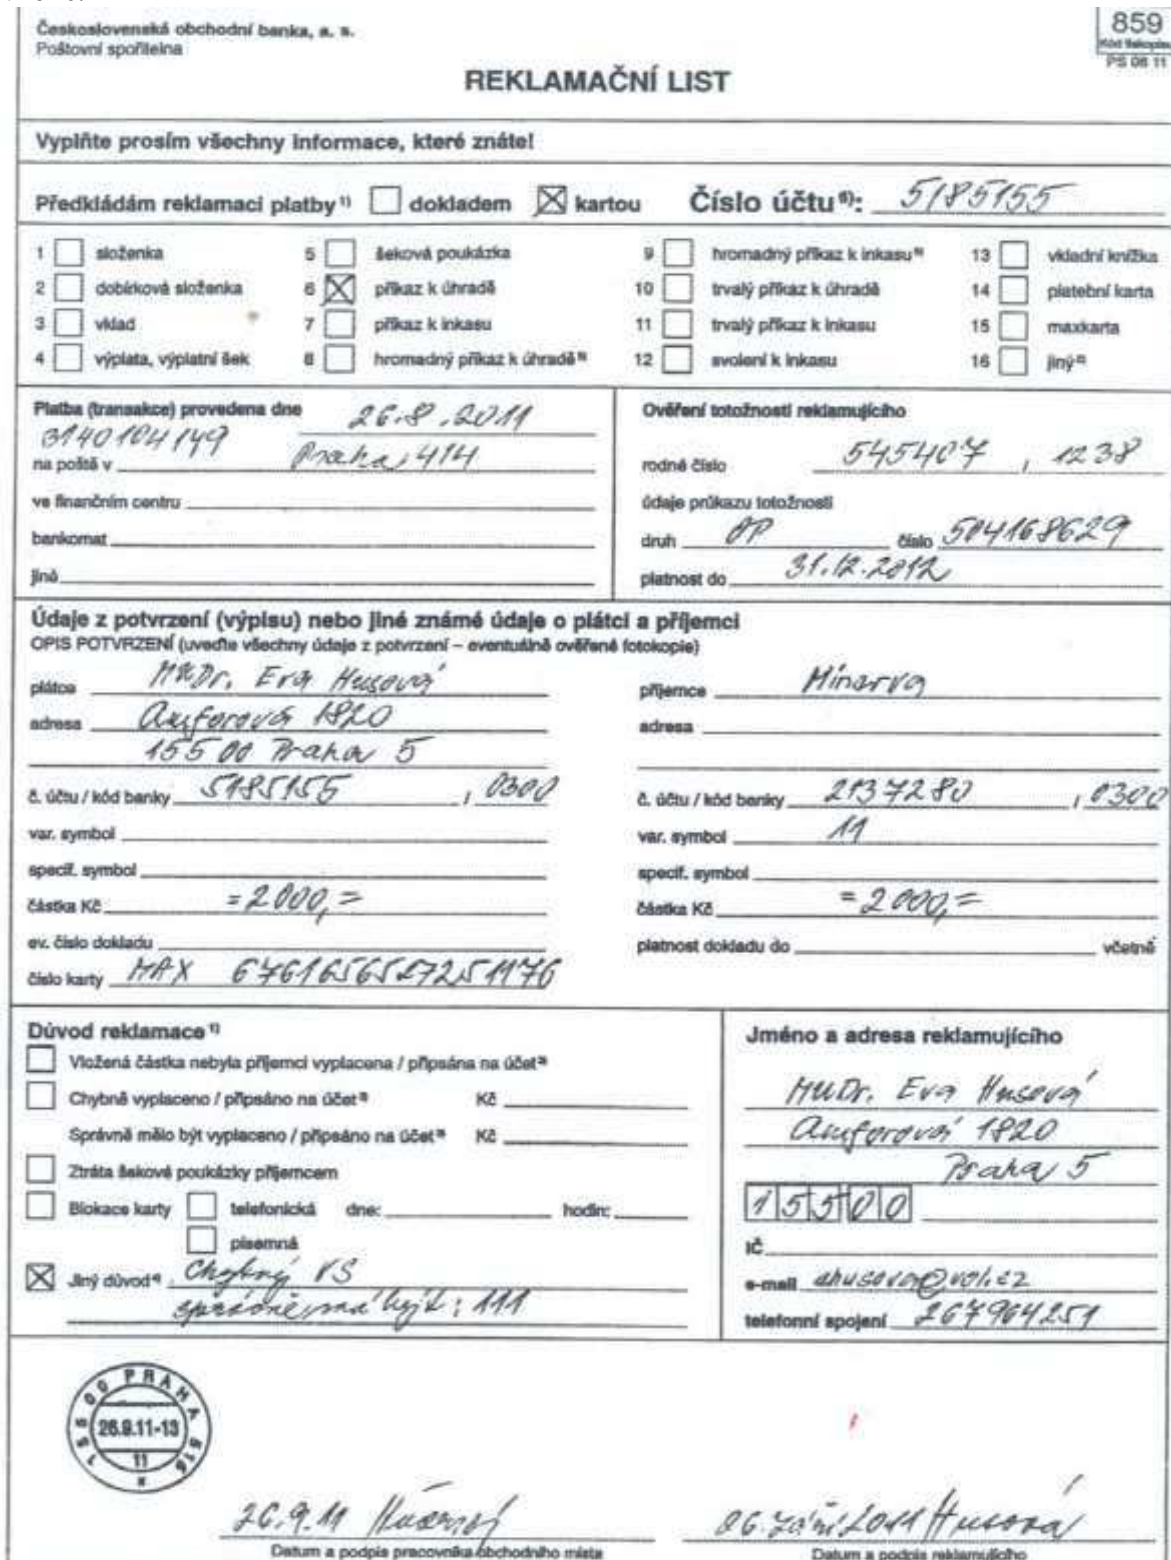 Československá obchodní banka, a. s.
Poštovní spořitelna
859
Kód tiskopisu
PS 06 11
REKLAMAČNÍ LIST
Vyplňte prosím všechny informace, které znáte!
Předkládám reklamaci platby 1) dokladem kartou Číslo účtu 6): 5185155
1 složenka 5 šeková poukázka 9 hromadný příkaz k inkasu 5) 13 vkladní knížka
2 dobírková složenka 6 příkaz k úhradě 10 trvalý příkaz k úhradě 14 platební karta
3 vklad 7 příkaz k inkasu 11 trvalý příkaz k inkasu 15 maxkarta
4 výplata, výplatní šek 8 hromadný příkaz k úhradě 5) 12 svolení k inkasu 16 jiný 2)
Platba (transakce) provedena dne 26.8.2011
3140104149
na poště v Praha 414
ve finančním centru
bankomat
jiné
Ověření totožnosti reklamujícího
rodné číslo 545407 / 1238
údaje průkazu totožnosti
druh OP číslo 504168629
platnost do 31.12.2012
Údaje z potvrzení (výpisu) nebo jiné známé údaje o plátci a příjemci
OPIS POTVRZENÍ (uveďte všechny údaje z potvrzení – eventuálně ověřené fotokopie)
plátce MUDr. Eva Husová
adresa Amforová 1820
155 00 Praha 5
č. účtu / kód banky 5185155 / 0300
var. symbol
specif. symbol
částka Kč =2000,=
ev. číslo dokladu
číslo karty MAX
příjemce Minerva
adresa
č. účtu / kód banky 2137280 / 0300
var. symbol 11
specif. symbol
částka Kč =2000,=
platnost dokladu do včetně
Důvod reklamace 1)
Vložená částka nebyla příjemci vyplacena / připsána na účet 3)
Chybně vyplaceno / připsáno na účet 3) Kč
Správně mělo být vyplaceno / připsáno na účet 3) Kč
Ztráta šekové poukázky příjemcem
Blokace karty telefonická dne: hodin:
písemná
Jiný důvod 4) Chybný VS
správně má být: 111
Jméno a adresa reklamujícího
MUDr. Eva Husová
Amforová 1820
Praha 5
15500
IČ
e-mail ehusova@vol.cz
telefonní spojení 267964251
155 00 PRAHA 515
26.9.11-13
11
26.9.11
Datum a podpis pracovníka obchodního místa
26. září 2011 Husová
Datum a podpis reklamujícího